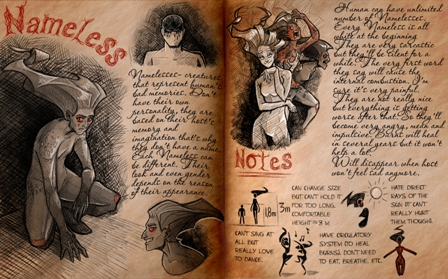 Nameless
Namelesses- creatures
that represent human's
bad memories. Don't
have their own
personality, they are
based on their host's
memory and
imagination that's why
they don't have a name.
Each Nameless can
be different. Their
look and even gender
depends on the reason
of their appearance.
Human can have unlimited
number of Namelesses.
Every Nameless is all
white at the beginning
They are very sarcastic
but they'll be silent for a
while. The very first word
they say will cause the
internal combustion. I'm
sure it's very painful.
They are not really nice
but everything is getting
worse after that. So they'll
become very angry, rude and
impulsive. Burns will heal
in several years but it won't
help a lot.
Will disappear when host
won't feel bad anymore.
Notes
1.8m
3m
CAN CHANGE SIZE
BUT CAN'T HOLD IT
FOR TOO LONG.
COMFORTABLE
HEIGHT IS 3 M.
HATE DIRECT
RAYS OF THE
SUN BUT CAN'T
REALLY HURT
THEM THOUGH.
CAN'T SING AT
ALL BUT REALLY
LOVE TO
DANCE.
HAVE CIRCULATORY
SYSTEM (TO HEAL
BURNS). DON'T NEED
TO EAT, BREATHE, ETC.